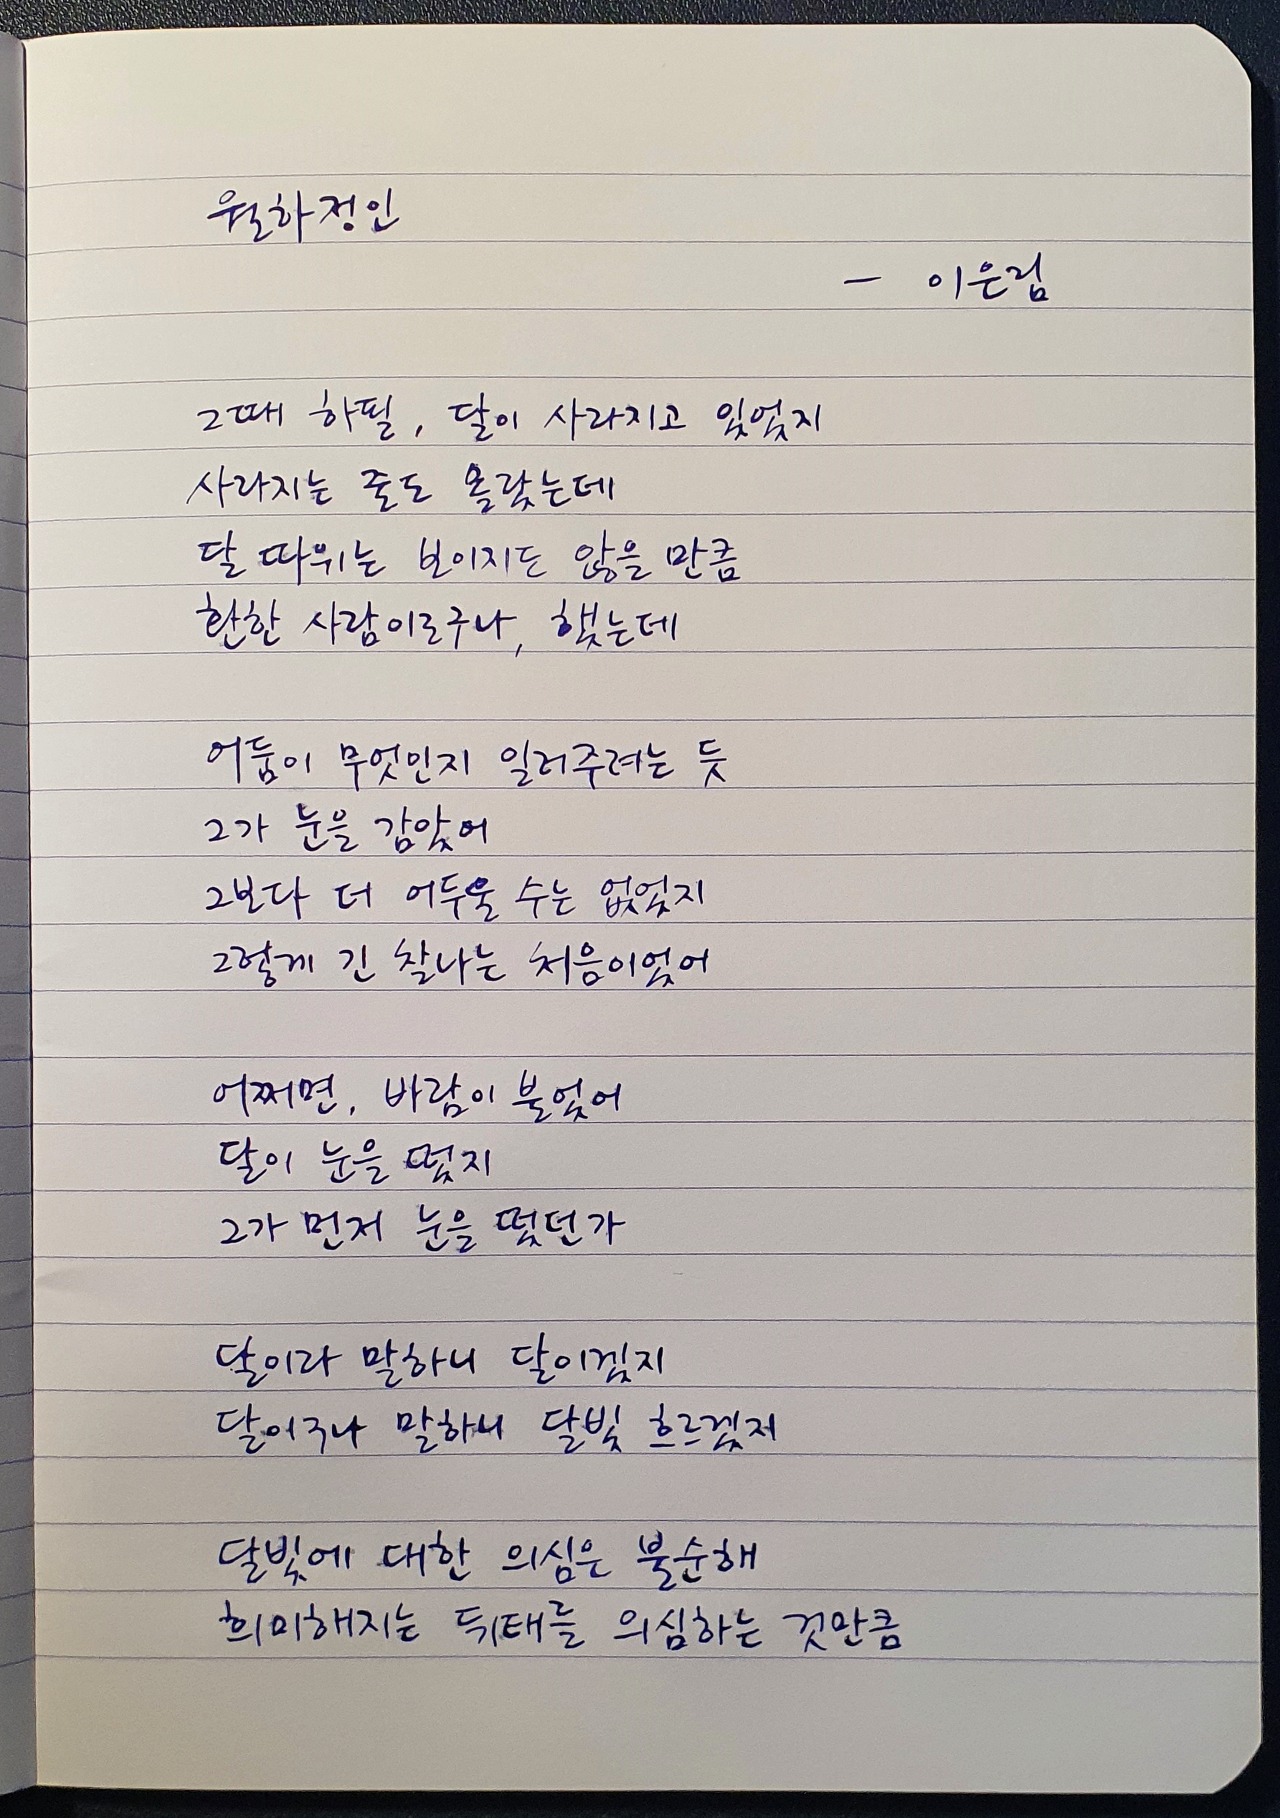 월하정인
- 이은림
그때 하필, 달이 사라지고 있었지
사라지는 줄도 몰랐는데
달 따위는 보이지도 않을 만큼
환한 사람이로구나, 했는데
어둠이 무엇인지 일러주려는 듯
그가 눈을 감았어
그보다 더 어두울 수는 없었지
그렇게 긴 찰나는 처음이었어
어쩌면, 바람이 불었어
달이 눈을 떴지
그가 먼저 눈을 떴던가
달이라 말하니 달이겠지
달이구나 말하니 달빛 흐르겠지
달빛에 대한 의심은 불순해
희미해지는 뒤태를 의심하는 것만큼